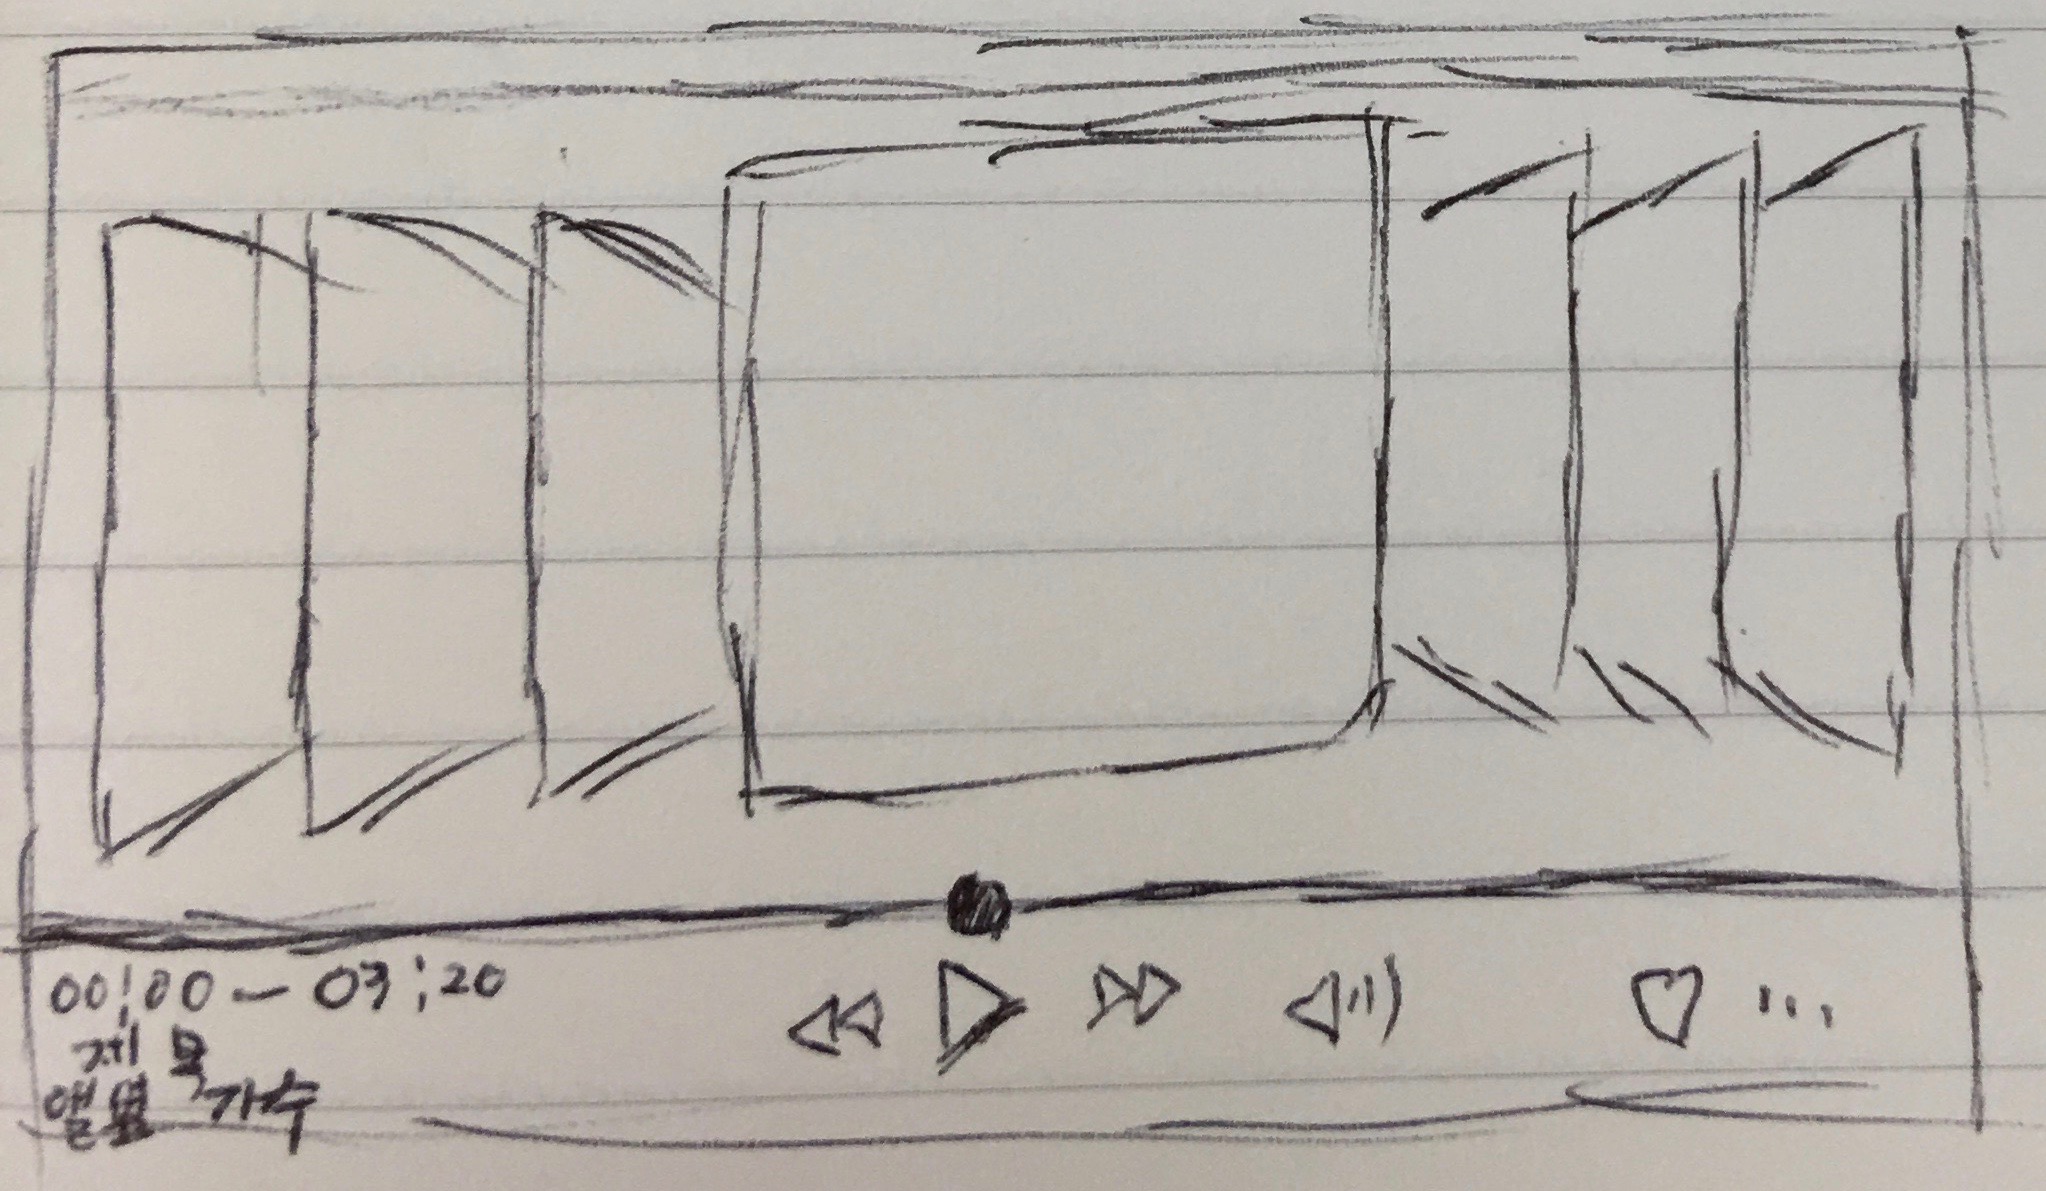 00:00 - 03:20
제목
앨범, 가수